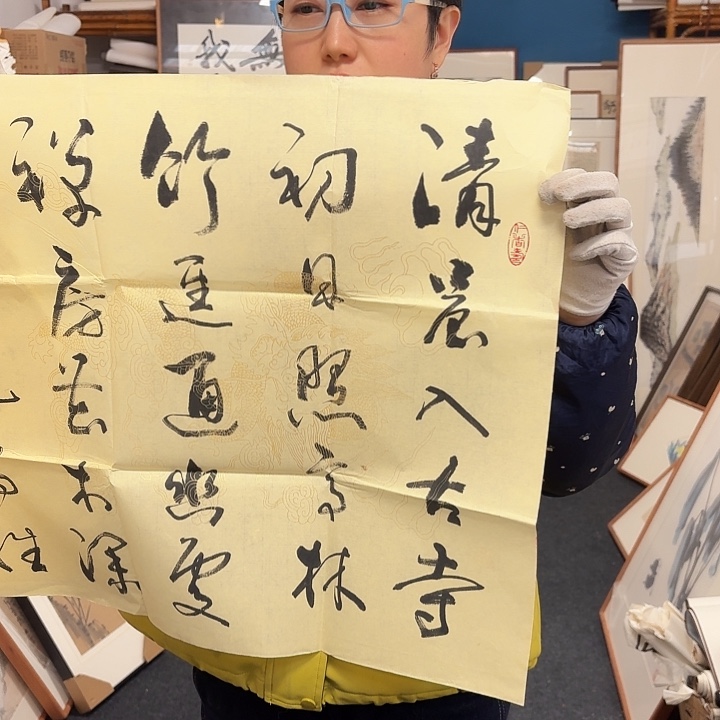 清晨入古寺
初日照高林
竹逕通幽處
禪房花木深
性
無我